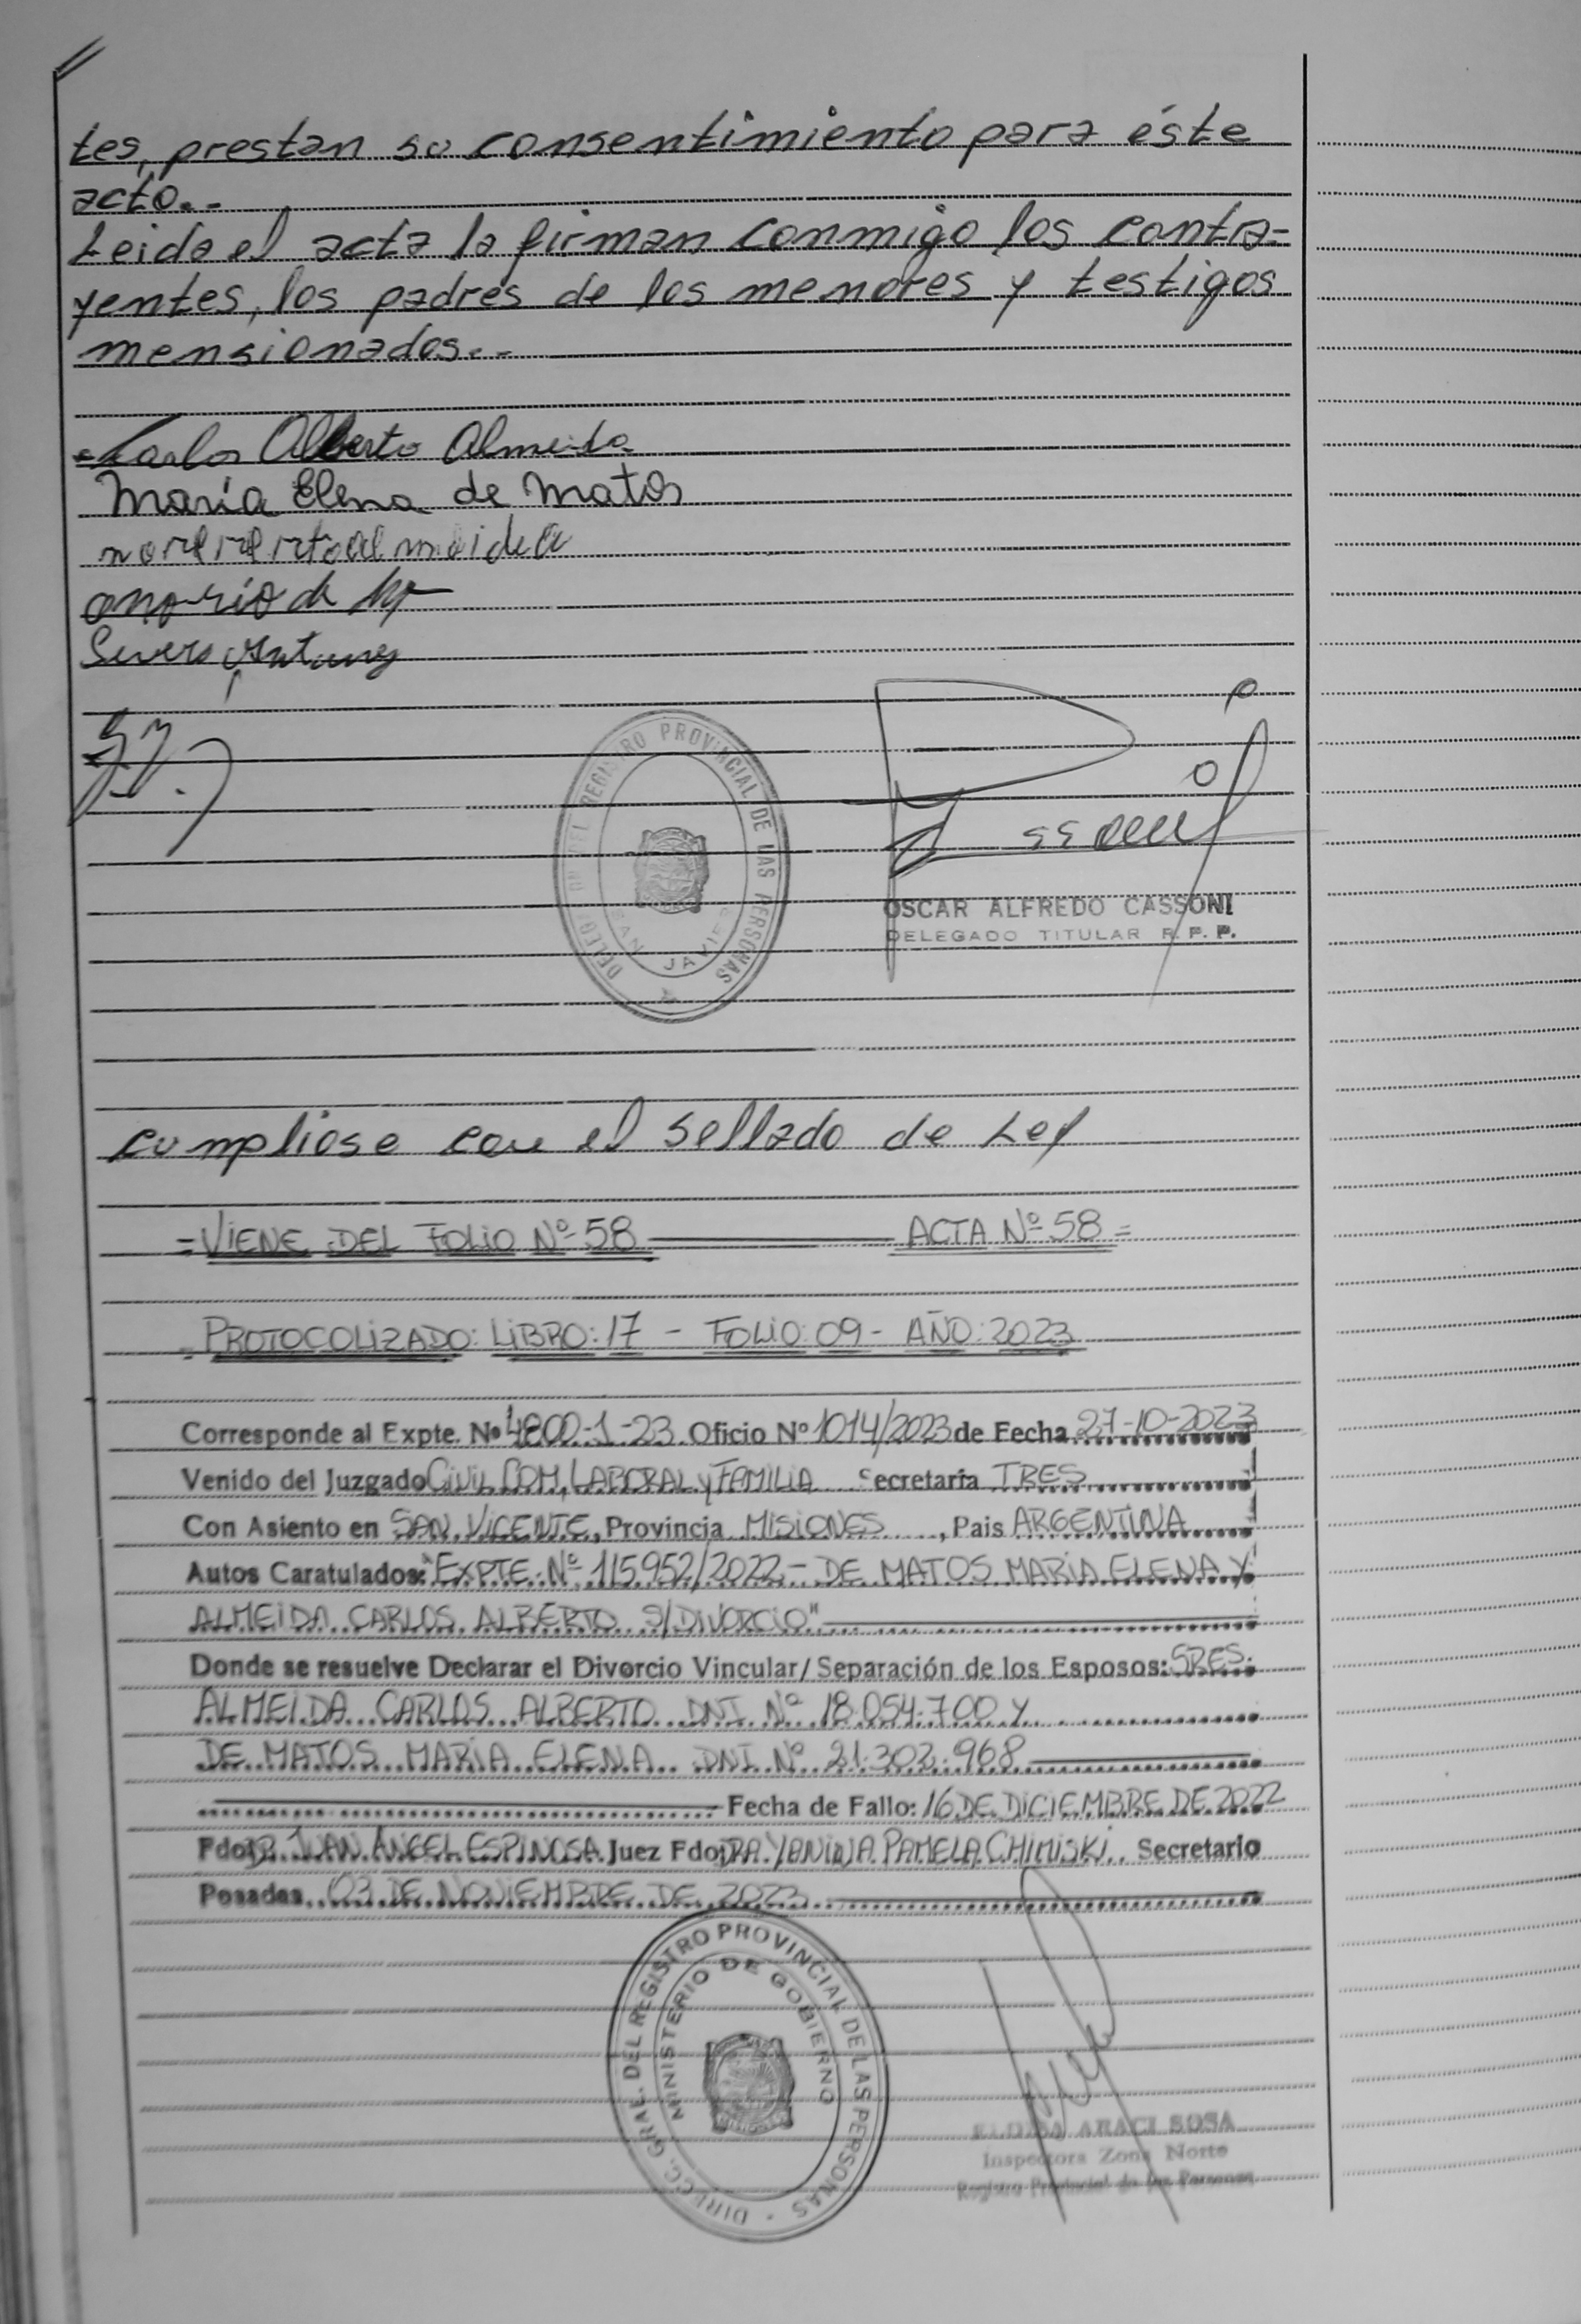 tes, prestan su consentimiento para éste
acto..-
Leida el acta la firman conmigo los contra-
yentes, los padres de los menores y testigos
mensionados..-
Carlos Alberto Almeida
María Elena de Matos
Severo Antunes
DELEGACION DEL REGISTRO PROVINCIAL DE LAS PERSONAS
SAN JAVIER
OSCAR ALFREDO CASSONI
DELEGADO TITULAR R. P. P.
cumpliose con el sellado de Ley
=VIENE DEL FOLIO Nº 58 ACTA Nº 58=
PROTOCOLIZADO: LIBRO: 17 - FOLIO: 09 - AÑO: 2023
Corresponde al Expte. Nº 4800-1-23 Oficio Nº 1014/2023 de Fecha 27-10-2023
Venido del Juzgado CIVIL, COM, LABORAL y FAMILIA Secretaría TRES
Con Asiento en SAN VICENTE, Provincia MISIONES, Pais ARGENTINA
Autos Caratulados: "EXPTE. Nº 115952/2022 - DE MATOS MARIA ELENA Y
ALMEIDA CARLOS ALBERTO S/DIVORCIO"
Donde se resuelve Declarar el Divorcio Vincular/Separación de los Esposos: SRES.
ALMEIDA CARLOS ALBERTO DNI Nº 18.054.700 Y
DE MATOS MARIA ELENA DNI Nº 21.302.968
Fecha de Fallo: 16 DE DICIEMBRE DE 2022
Fdo: DR. JUAN ANGEL ESPINOSA Juez Fdo: DRA. YANINA PAMELA CHIMISKI Secretario
Posadas, 03 DE NOVIEMBRE DE 2023
DIRECC. GRAL. DEL REGISTRO PROVINCIAL DE LAS PERSONAS
MINISTERIO DE GOBIERNO
ARACI SOSA
Inspectora Zona Norte
Registro Provincial de las Personas